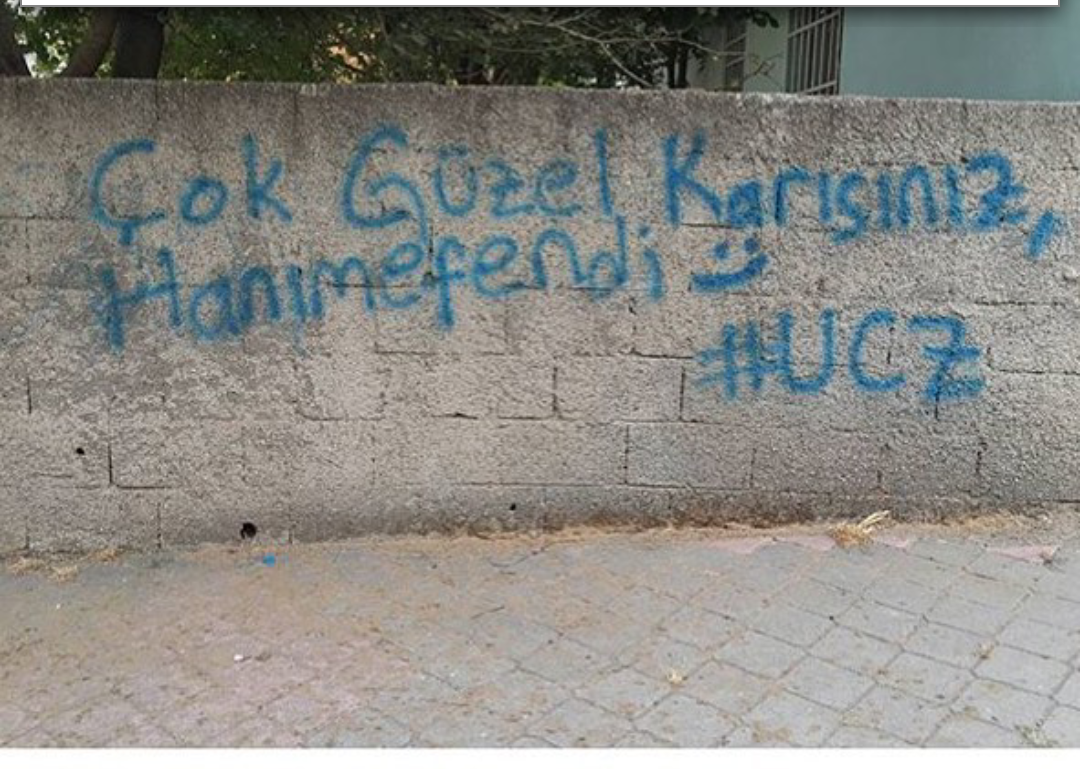 Çok Güzel Karışınız,
Hanımefendi
#UCZ